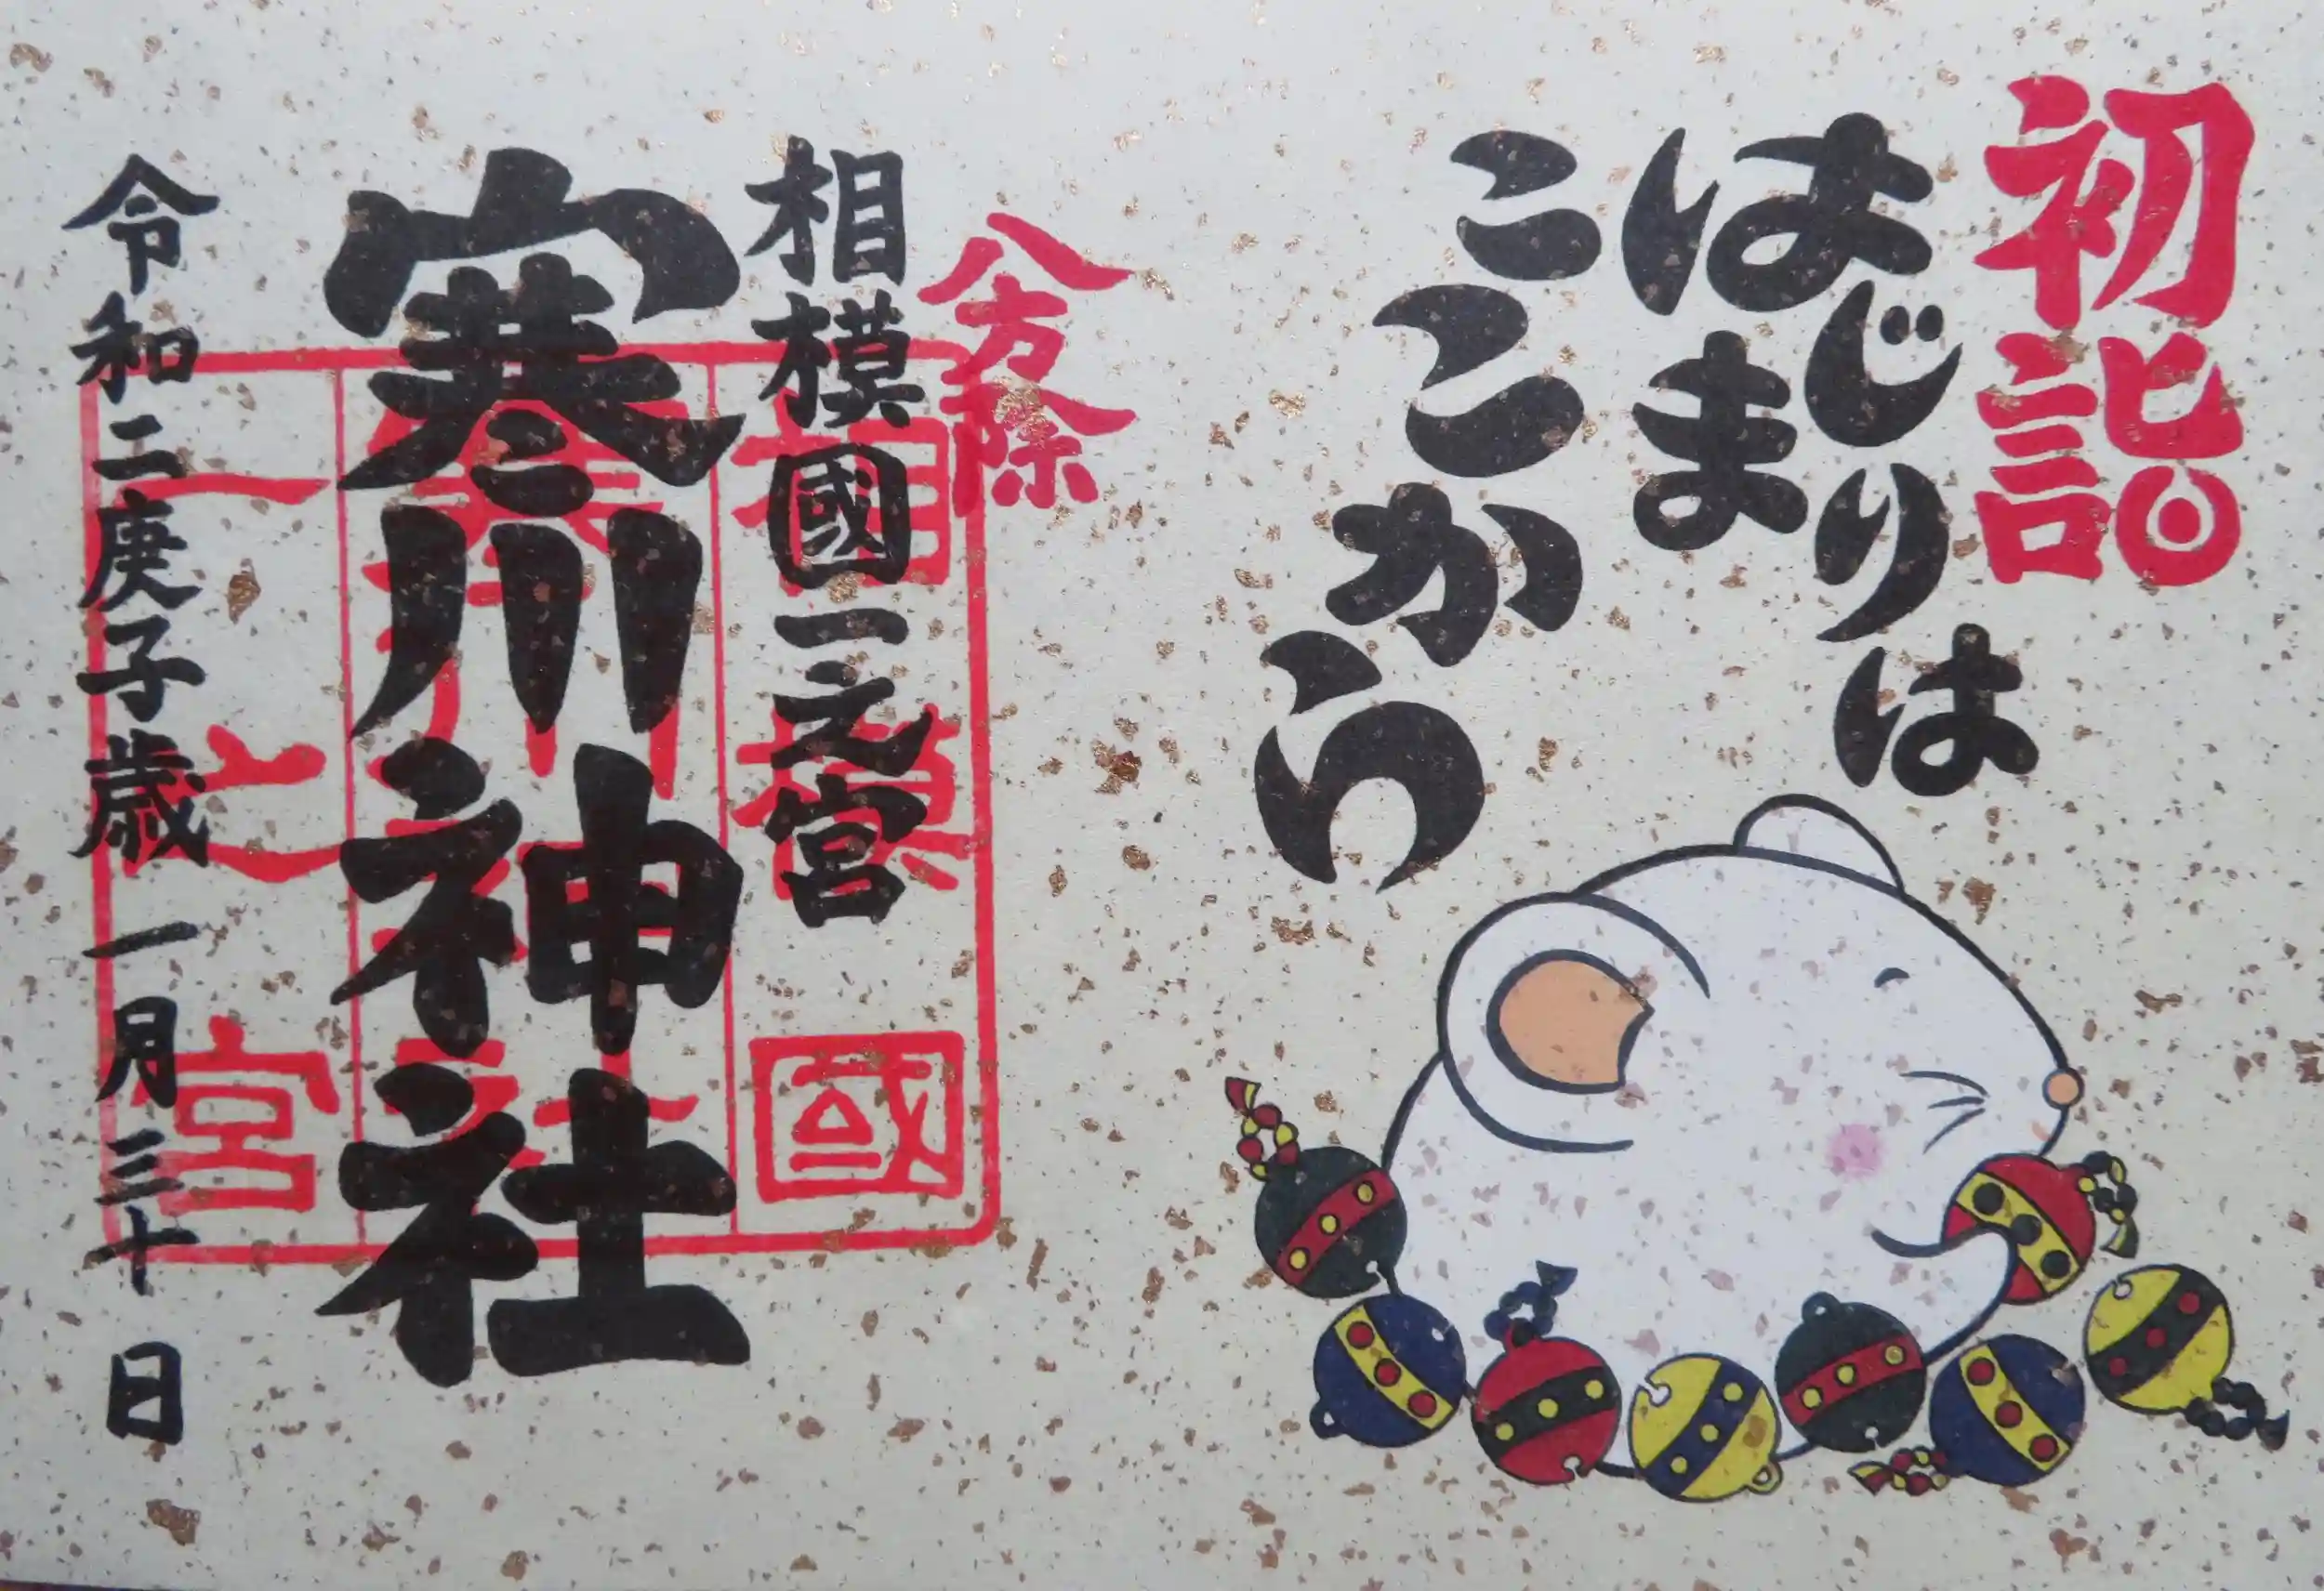 初詣
はじりは
はま
ここから
八方除
相模國一之宮
寒川神社
令和二庚子歳 一月三十日
相模國
寒川神社
一之宮